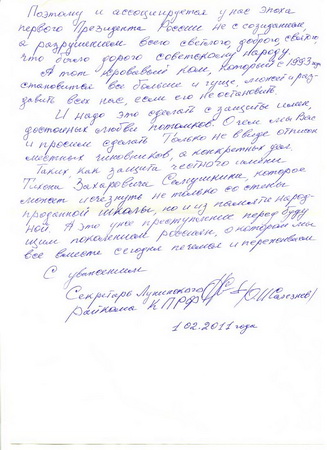 Поэтому и ассоциируется у нас эпоха
первого Президента России не с созиданием,
а разрушением всего светлого, доброго, святого,
что было дорого советскому народу.
А тот кровавый ком, который с 1993 года
становится все больше и гуще, может и раз-
давить всех нас, если его не остановить.
И надо это сделать с защиты имен,
достойных любви потомков. О чем мы Вас
и просим сделать только не в виде отписок
местных чиновников, а конкретных дел.
Таких как защита честного имени
Тихона Захаровича Семушкина, которое
может исчезнуть не только со стены
проданной школы, но и из памяти народ-
ной. А это уже преступление перед буду-
щим поколением россиян, о котором мы
все вместе сегодня печемся и переживаем
С уважением
Секретарь Лунинского
райкома КПРФ
1 02.2011 года